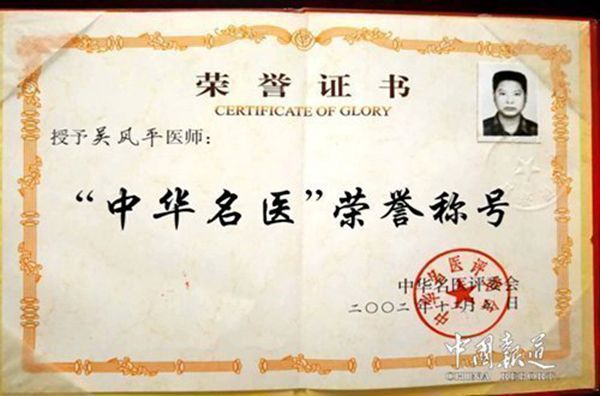 荣誉证书
CERTIFICATE OF GLORY
授予吴风平医师：
“中华名医”荣誉称号
中华名医评委会
二〇〇二年十月 日
中国报道
CHINA REPORT